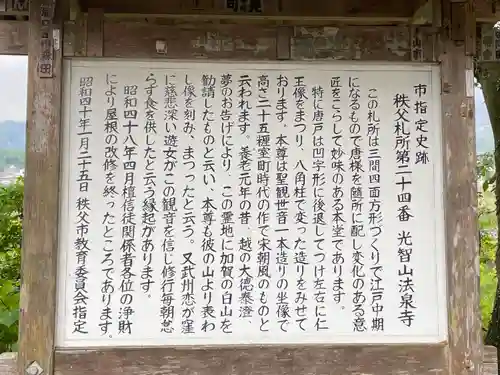 市指定史跡
秩父札所第二十四番　光智山法泉寺
この札所は三間四面方形づくりで江戸中期
になるもので唐様を随所に配し変化のある意
匠をこらして妙味のある本堂であります。
特に唐戸は凹字形に後退してつけ左右に仁
王像をまつり、八角柱で変った造りをみせて
おります。本尊は聖観世音一本造りの坐像で
高さ二十五糎室町時代の作で宋朝風のものと
云われます。養老元年の昔、越の大德泰澄、
夢のお告げにより、この霊地に加賀の白山を
勧請したものと云い、本尊も彼の山より表わ
し像を刻み、まつったと云う。又武州恋が窪
に慈悲深い遊女がこの観音を信じ修行毎朝怠
らず食を供したと云う縁起があります。
昭和四十八年四月檀信徒関係者各位の浄財
により屋根の改修を終ったところであります。
昭和四十年一月二十五日　秩父市教育委員会指定